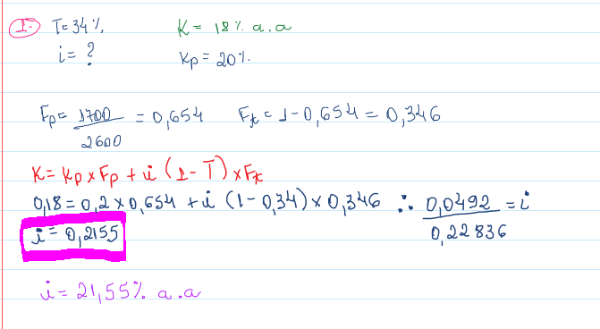 1- T=34%, K= 18% a.a
i= ? Kp= 20%.
Fp= 1700/2600 = 0,654 Ft= 1-0,654 = 0,346
K= Kp x Fp + i (1-T) x Ft
0,18=0,2 x 0,654 + i (1-0,34) x 0,346 ∴ 0,0492/0,22836 = i
i= 0,2155
i= 21,55% a.a